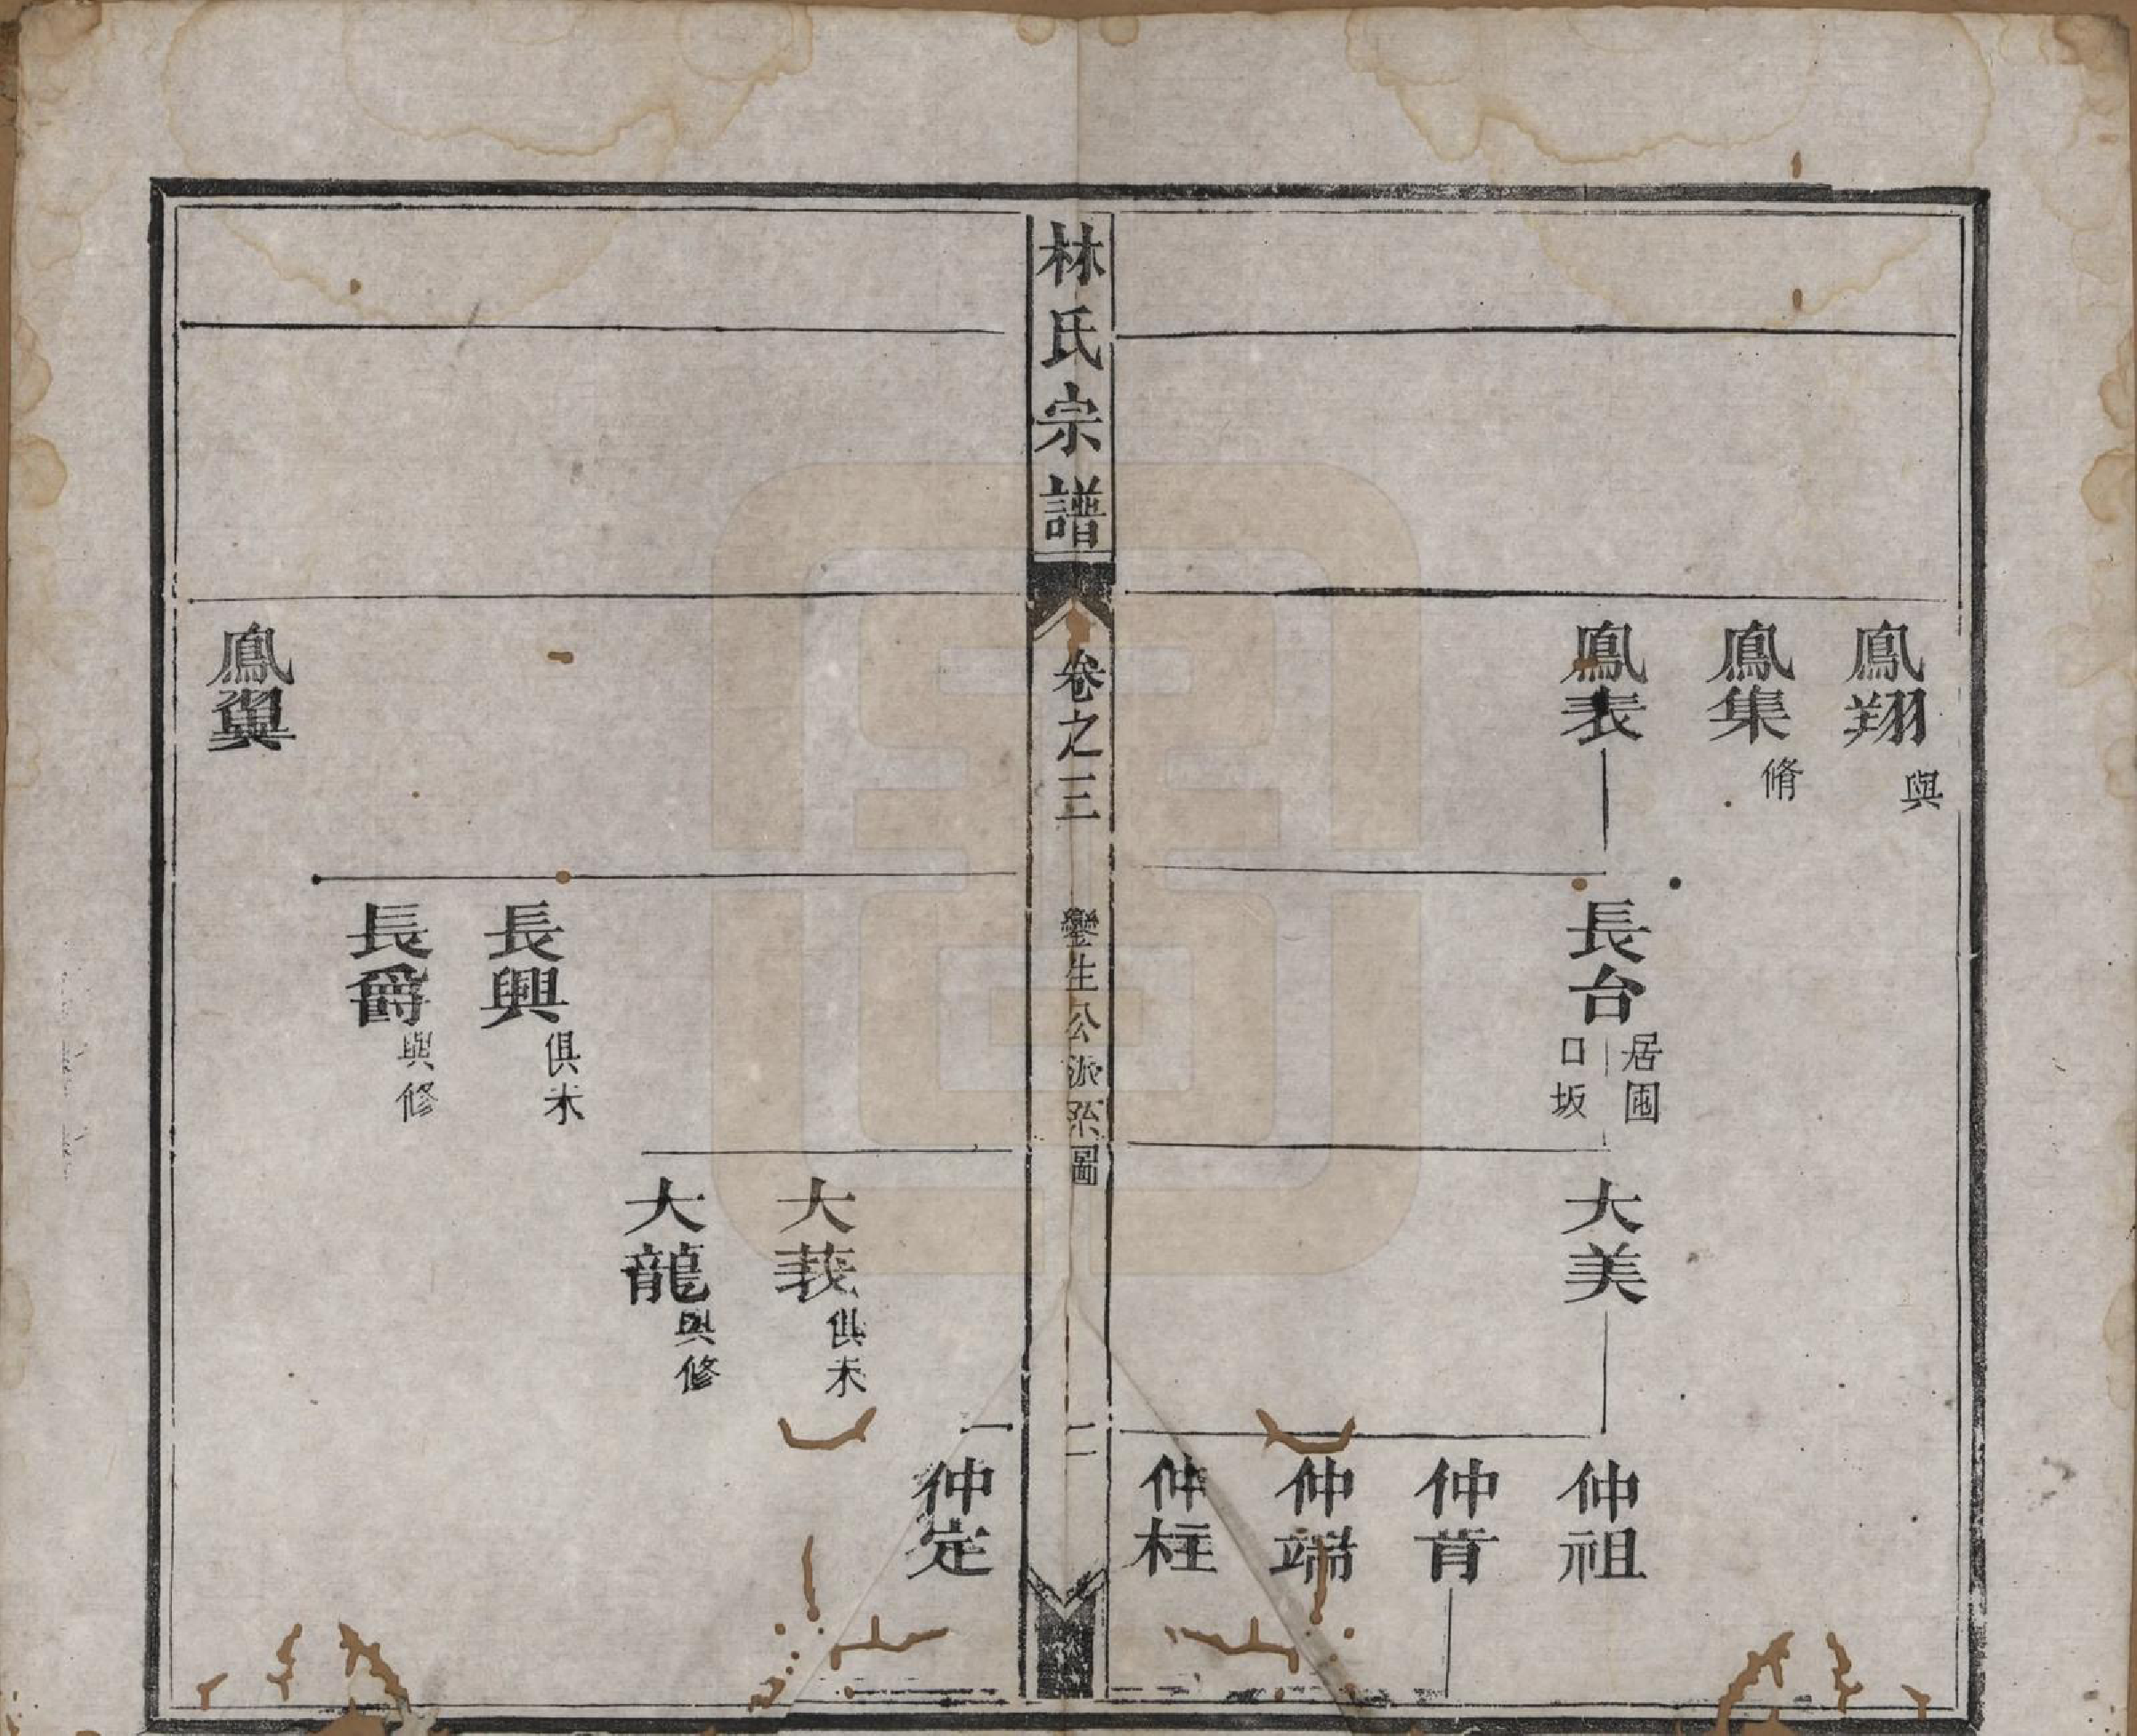 鳳翔 與
鳳集 脩
鳳表
長台 居囤口坂
大美
仲祖
仲肯
仲端
仲柱
林氏宗譜
卷之三
鑾生公派系圖
二
仲定
大莪 俱未
大龍 與修
長興 俱未
長爵 與修
鳳翼